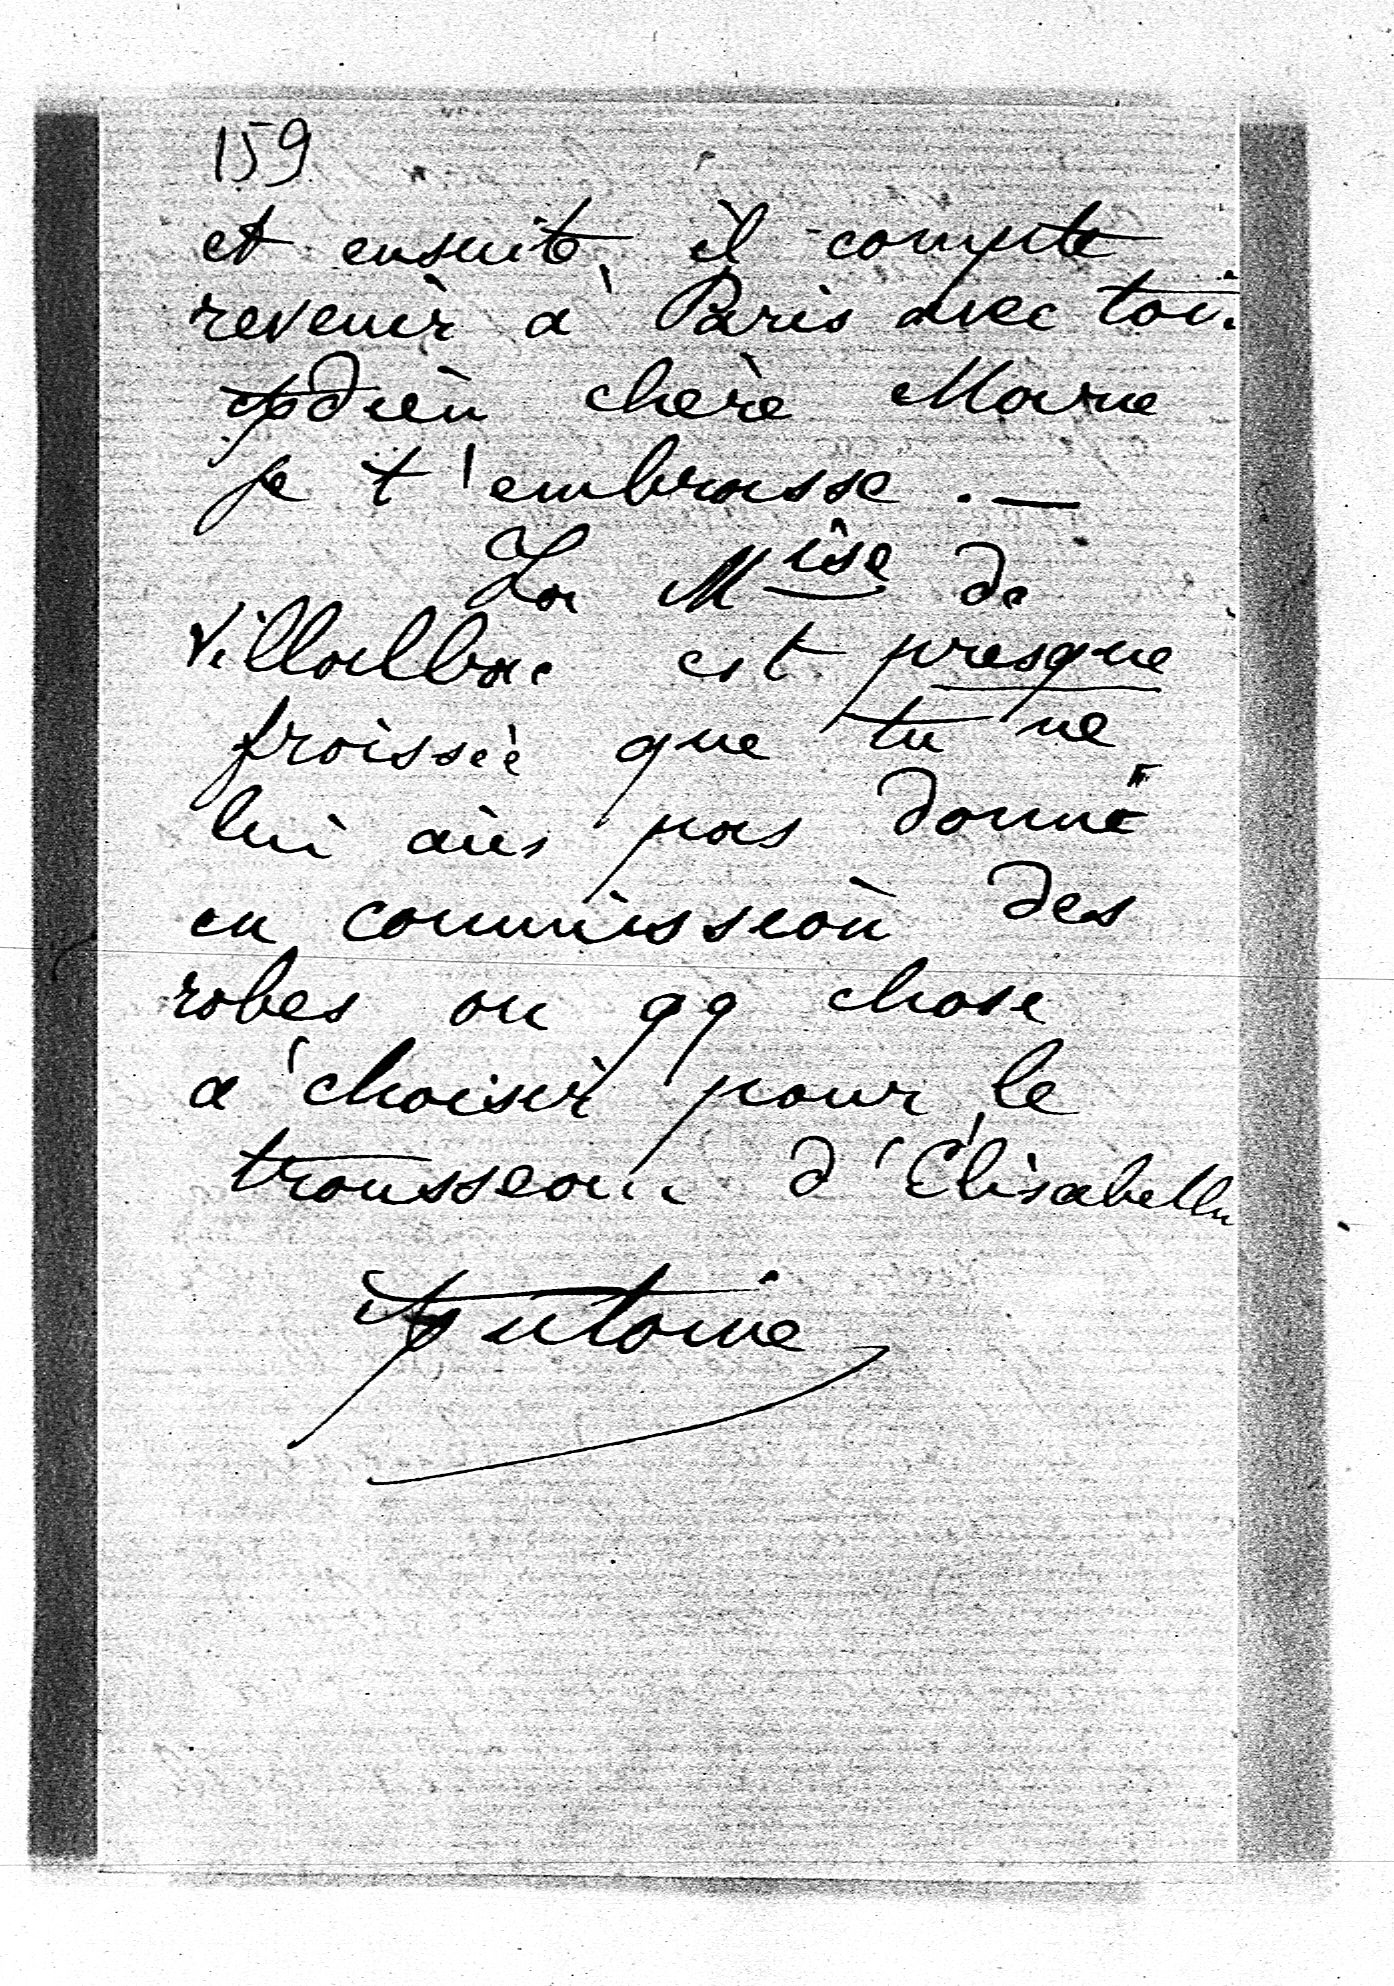 159
et ensuite, il compte
revenir à Paris avec toi.
Adieu chère Marie
je t'embrasse. —
La Mise de
Villalbar est presque
froissée que tu ne
lui aies pas donné
en commission des
robes ou qq chose
à choisir pour le
trousseau d'Elisabeth
Antoine